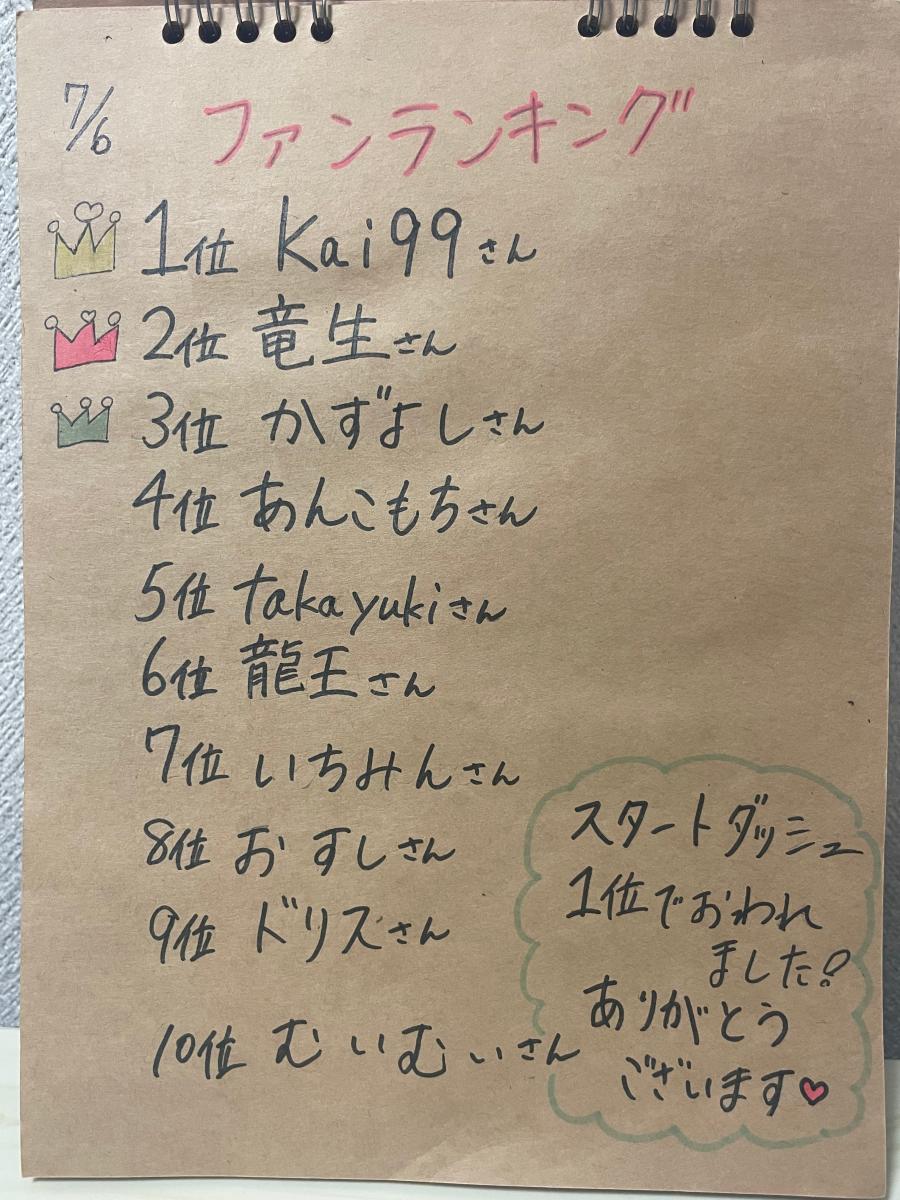 7/6
ファンランキング
1位 Kai99さん
2位 竜生さん
3位 かずよしさん
4位 あんこもちさん
5位 takayukiさん
6位 龍王さん
7位 いちみんさん
8位 おすしさん
9位 ドリスさん
10位 むぃむぃさん
スタートダッシュ
1位でおわれ
ました!
ありがとう
ございます♥